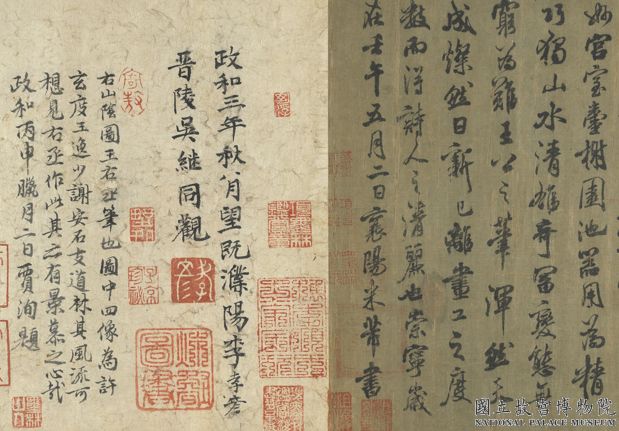 妙宮室臺榭園池器用為精
巧獨山水清雄奇富變態無
窮為難王公之筆渾然天
成燦然日新已離畫工之度
數而得詩人之清麗也崇寧歲
在壬午五月二日襄陽米芾書
政和三年秋八月望既濮陽李孝彥
晉陵吳継同觀
右山陰圖王右丞筆也圖中四像為許
玄度王逸少謝安石支道林其風流可
想見右丞作此其亦有景慕之心哉
政和丙申臘月二日賈洵題
國立故宮博物院
NATIONAL PALACE MUSEUM